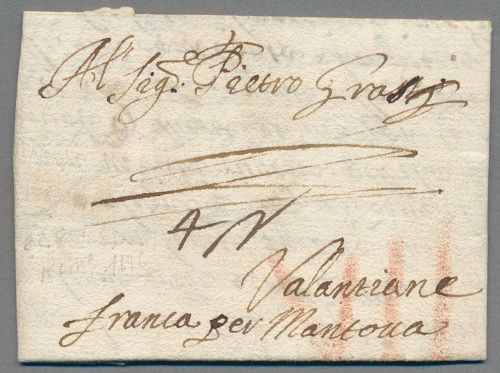 Al Sig.r Pietro Grassi
4
Valantiane
franca per Mantova